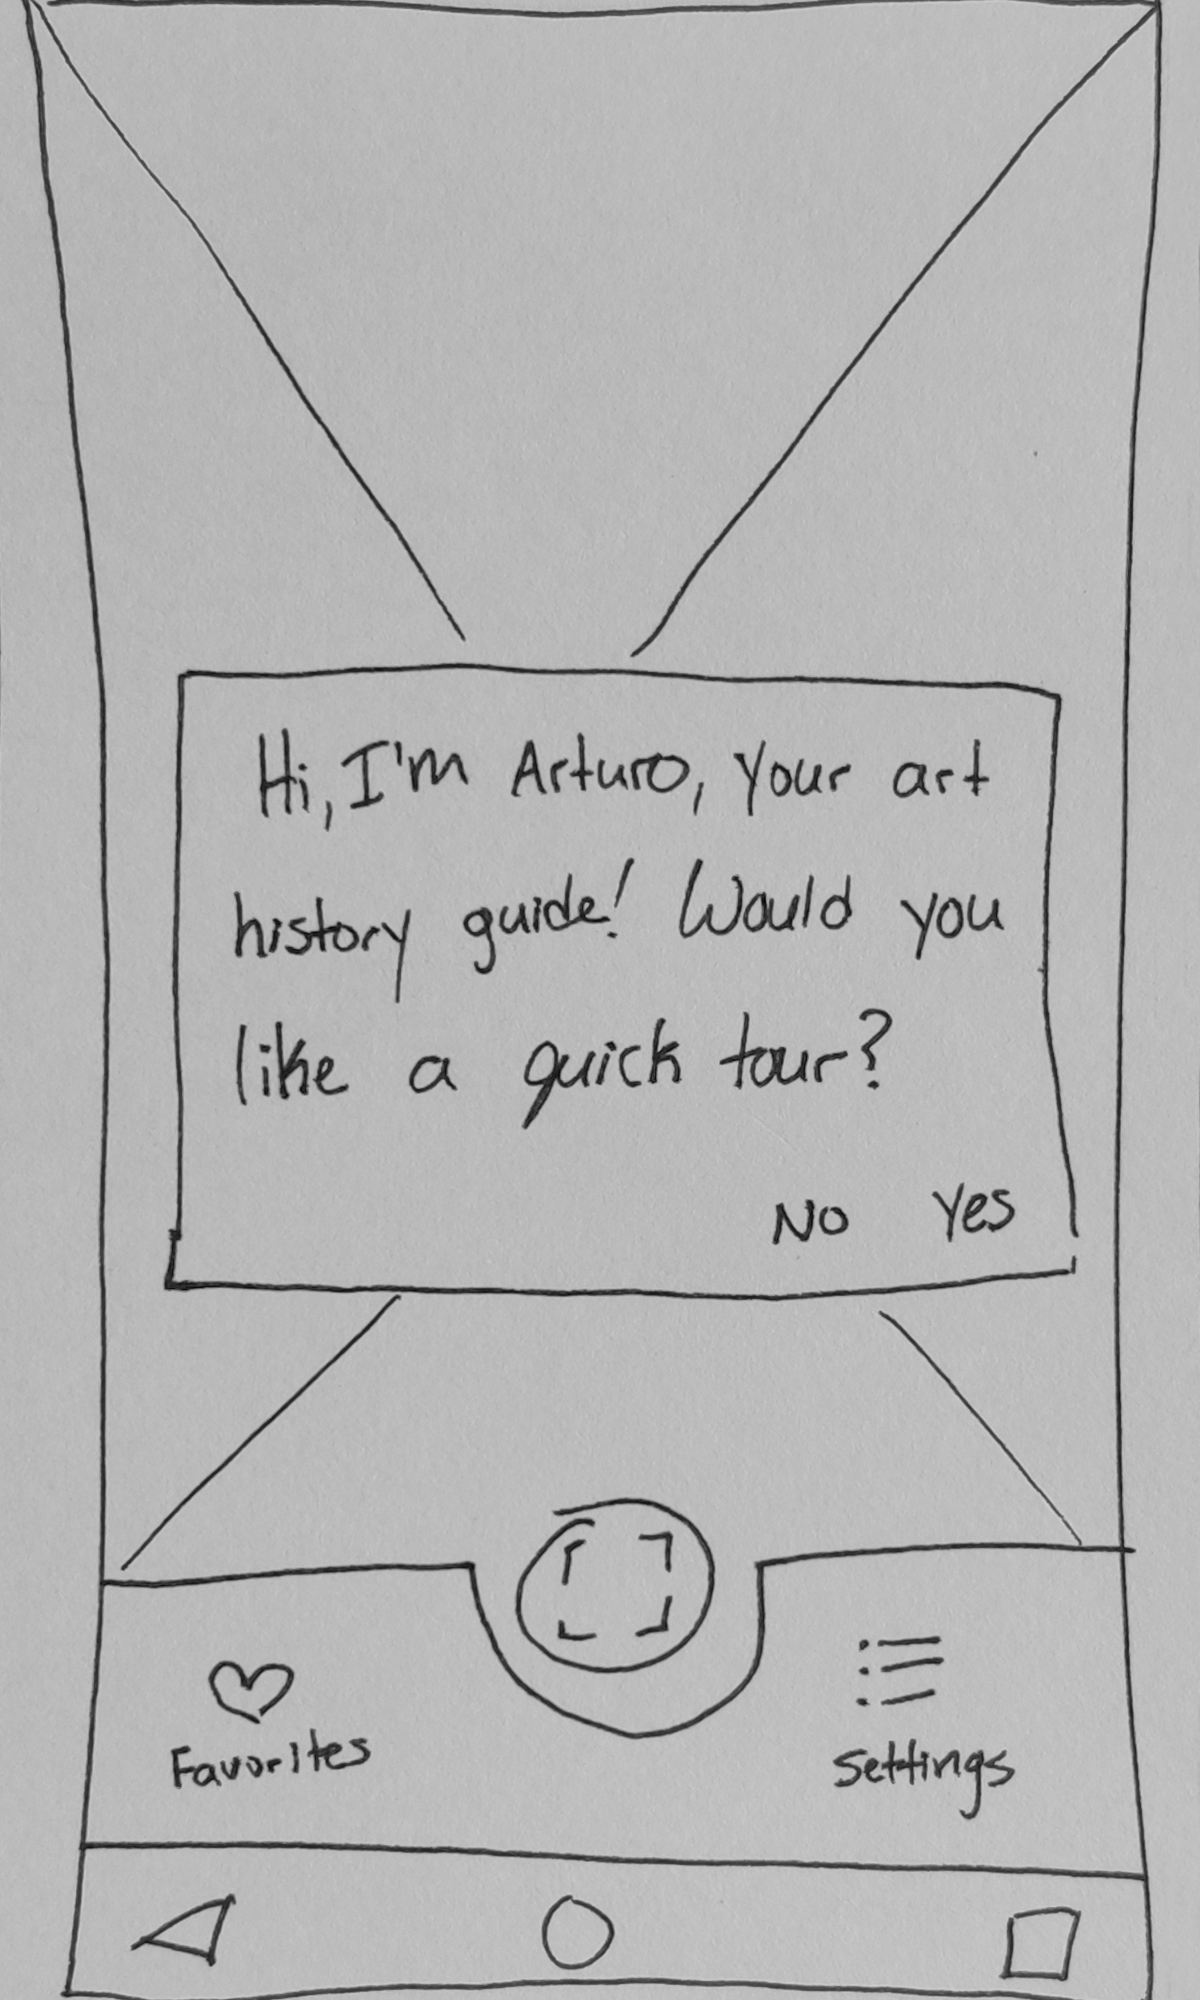 Hi, I'm Arturo, your art
history guide! Would you
like a quick tour?
No Yes
Favorites
Settings